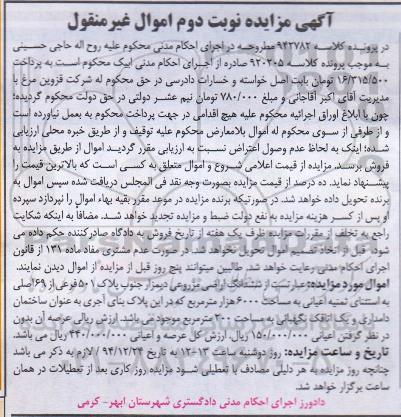 آگهی مزایده نوبت دوم اموال غیرمنقول
در پرونده کلاسه ۹۴۲۷۸۲ مطروحه در اجرای احکام مدنی محکوم علیه روح اله حاجی حسینی
به موجب پرونده کلاسه ۹۲۰۲۰۵ صادره از اجرای احکام مدنی ابیک محکوم است به پرداخت
۱۶/۳۱۵/۵۰۰ تومان بابت اصل خواسته و خسارات دادرسی در حق محکوم له شرکت قزوین مرغ با
مدیریت آقای اکبر آقاجانی و مبلغ ۷۸۰/۰۰۰ تومان نیم عشر دولتی در حق دولت محکوم گردیده؛
چون با ابلاغ اوراق اجرائیه محکوم علیه هیچ اقدامی در جهت پرداخت محکوم به بعمل نیاورده است
و از طرفی از سوی محکوم له اموال بلامعارض محکوم علیه توقیف و از طریق خبره محلی ارزیابی
شده؛ اینک به لحاظ عدم وصول اعتراض نسبت به ارزیابی مقرر گردید اموال از طریق مزایده به
فروش برسد. مزایده از قیمت اعلامی شروع و اموال متعلق به کسی است که بالاترین قیمت را
پیشنهاد نماید. ده درصد از قیمت مزایده بصورت وجه نقد فی المجلس دریافت شده سپس اموال به
برنده تحویل داده خواهد شد. در صورتیکه برنده مزایده در موعد مقرر بقیه بهاء اموال را نپردازد سپرده
او پس از کسر هزینه مزایده به نفع دولت ضبط و مزایده تجدید خواهد شد. مضافاً به اینکه شکایت
راجع به تخلف از مقررات مزایده ظرف یک هفته از تاریخ فروش به دادگاه صادرکننده حکم داده می
شود، قبل از اتخاذ تصمیم اموال تحویل نخواهد شد. در صورت عدم مشتری مفاد ماده ۱۳۱ از قانون
اجرای احکام مدنی رعایت خواهد شد. طالبین میتوانند پنج روز قبل از مزایده از اموال دیدن نمایند.
اموال مورد مزایده: عبارتست از ششدانگ اراضی مزروعی دیمزار جنوب پلاک ۵۰۱ فرعی از ۶۹ اصلی
به استثنای ثمنیه اعیانی به مساحت ۶۰۰۰ هزار مترمربع که در این پلاک بنای آجری به عنوان ساختمان
دامداری و یک اتاقک نگهبانی به مساحت ۲۰۰ مترمربع موجود می باشد. ارزش ریالی عرصه آن بدون
در نظر گرفتن اعیانی ۱۵۰/۰۰۰/۰۰۰ ریال، ارزش کل عرصه و اعیانی ۴۴۰/۰۰۰/۰۰۰ ریال می باشد.
تاریخ و ساعت مزایده: روز دوشنبه ساعت ۱۳-۱۲ به تاریخ ۹۴/۱۲/۲۴ / لازم به ذکر می باشد
چنانچه روز مزایده به هر دلیلی مصادف با تعطیلی شود مزایده روز کاری بعد از تعطیلات در همان
ساعت برگزار خواهد شد.
دادورز اجرای احکام مدنی دادگستری شهرستان ابهر- کرمی